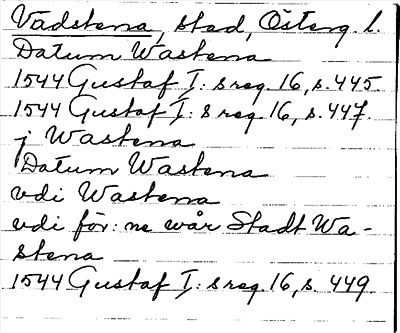 Vadstena, stad, Österg. l.
Datum Wastena
1544 Gustaf I: s reg. 16, s. 445.
1544 Gustaf I: s reg. 16, s. 447.
j Wastena
Datum Wastena
vdi Wastena
vdi för: ne wår Stadt Wa-
stena
1544 Gustaf I: s reg. 16, s. 449.